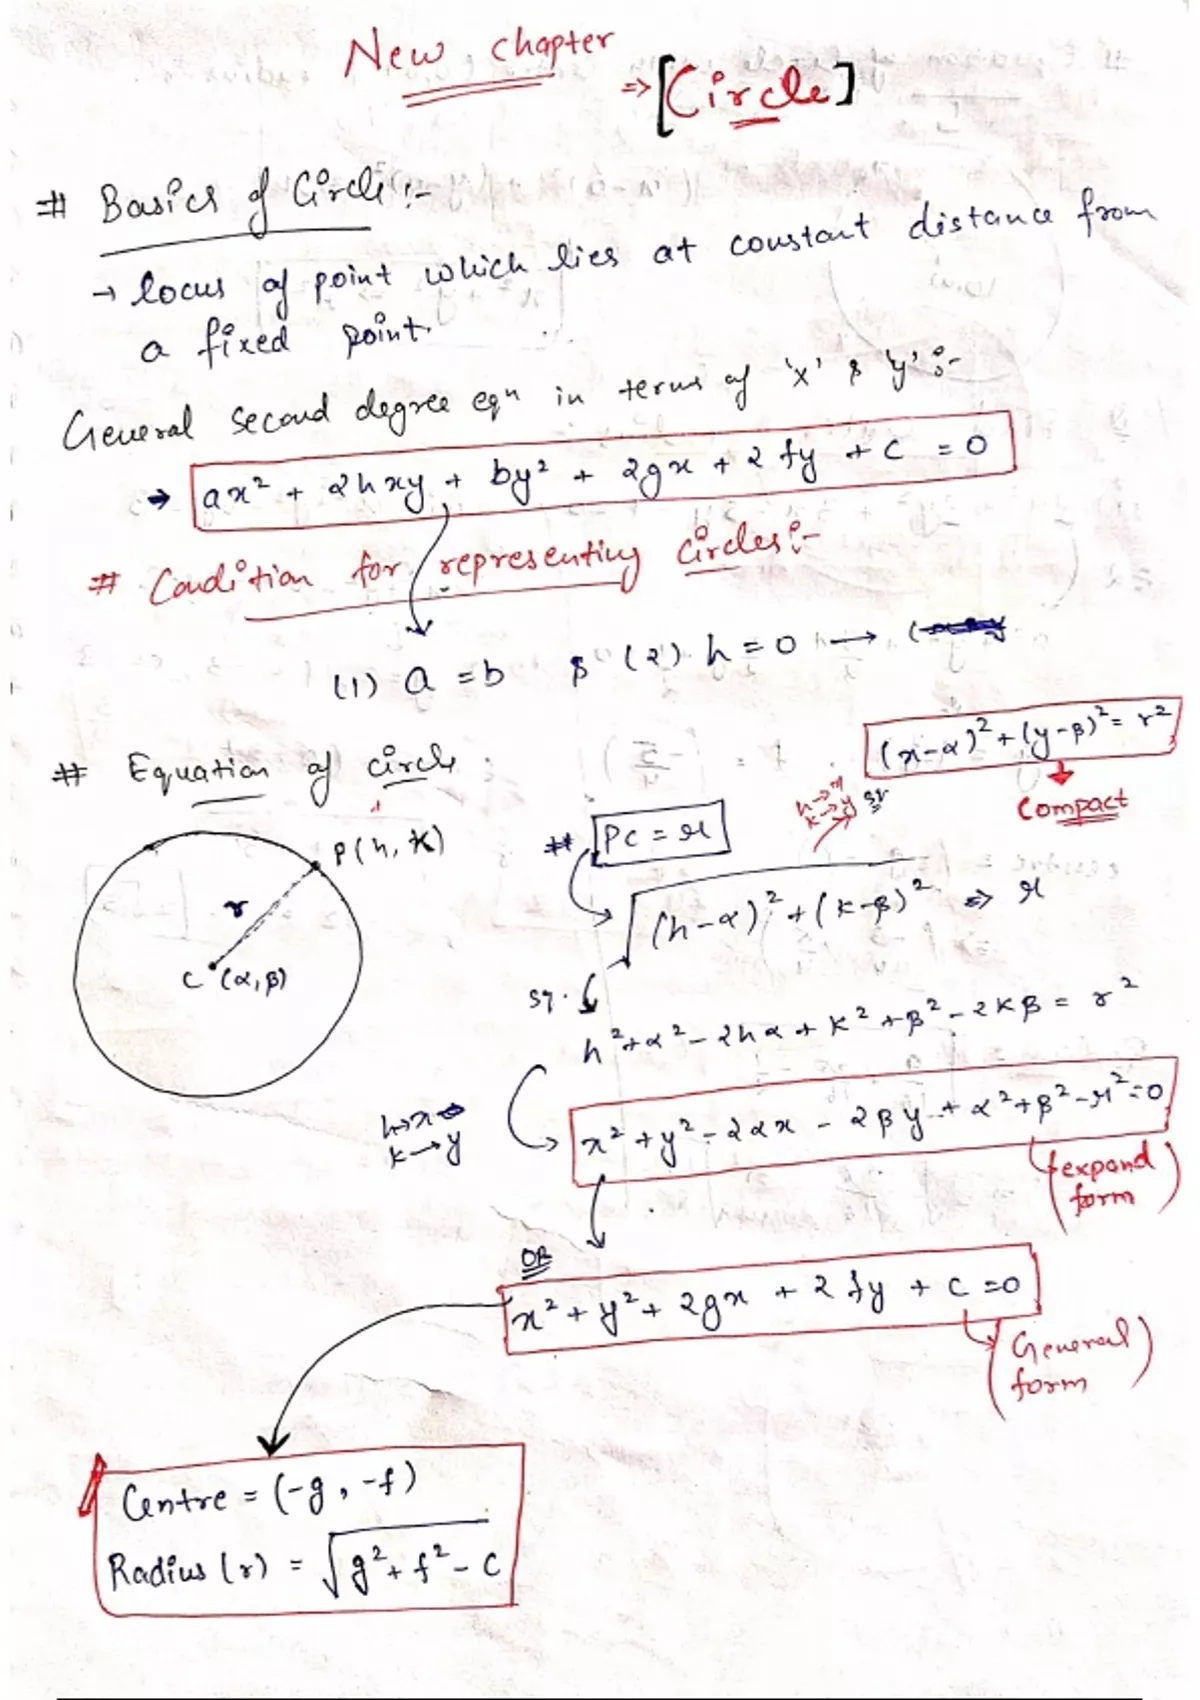 New chapter
⇒ [Circle]
# Basics of Circle :-
→ locus of point which lies at constant distance from
a fixed point.
General second degree eqn in terms of 'x' & 'y' :-
→ ax² + 2hxy + by² + 2gx + 2fy + c = 0
# Condition for representing circles :-
(1) a = b & (2) h = 0 → (
(x-α)² + (y-β)² = r²
Compact
## Equation of circle
P(h, k)
r
C (α, β)
## PC = r
h → x
k → y
√(h-α)² + (k-β)² ⇒ r
sq.
h² + α² - 2hα + k² + β² - 2kβ = r²
h → x
k → y
x² + y² - 2αx - 2βy + α² + β² - r² = 0
(expand form)
OR
x² + y² + 2gx + 2fy + c = 0
(General form)
Centre = (-g, -f)
Radius (r) = √g² + f² - c